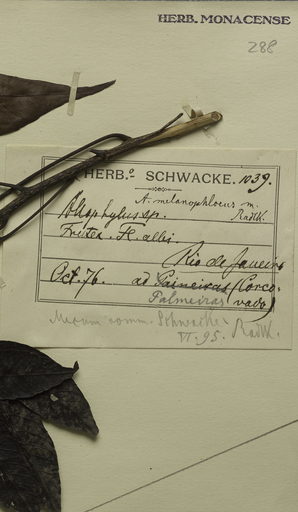 HERB. MONACENSE
288
HERB.º SCHWACKE. 1039.
A. melanophloeus m.
Allophylus sp. Radlk.
Frutex. Fl. albis.
Rio de Janeiro
Oct. 76. ad Paineiras (Corco-
Palmeiras vado)
comm. Schwacke
VI. 95. Radlk.